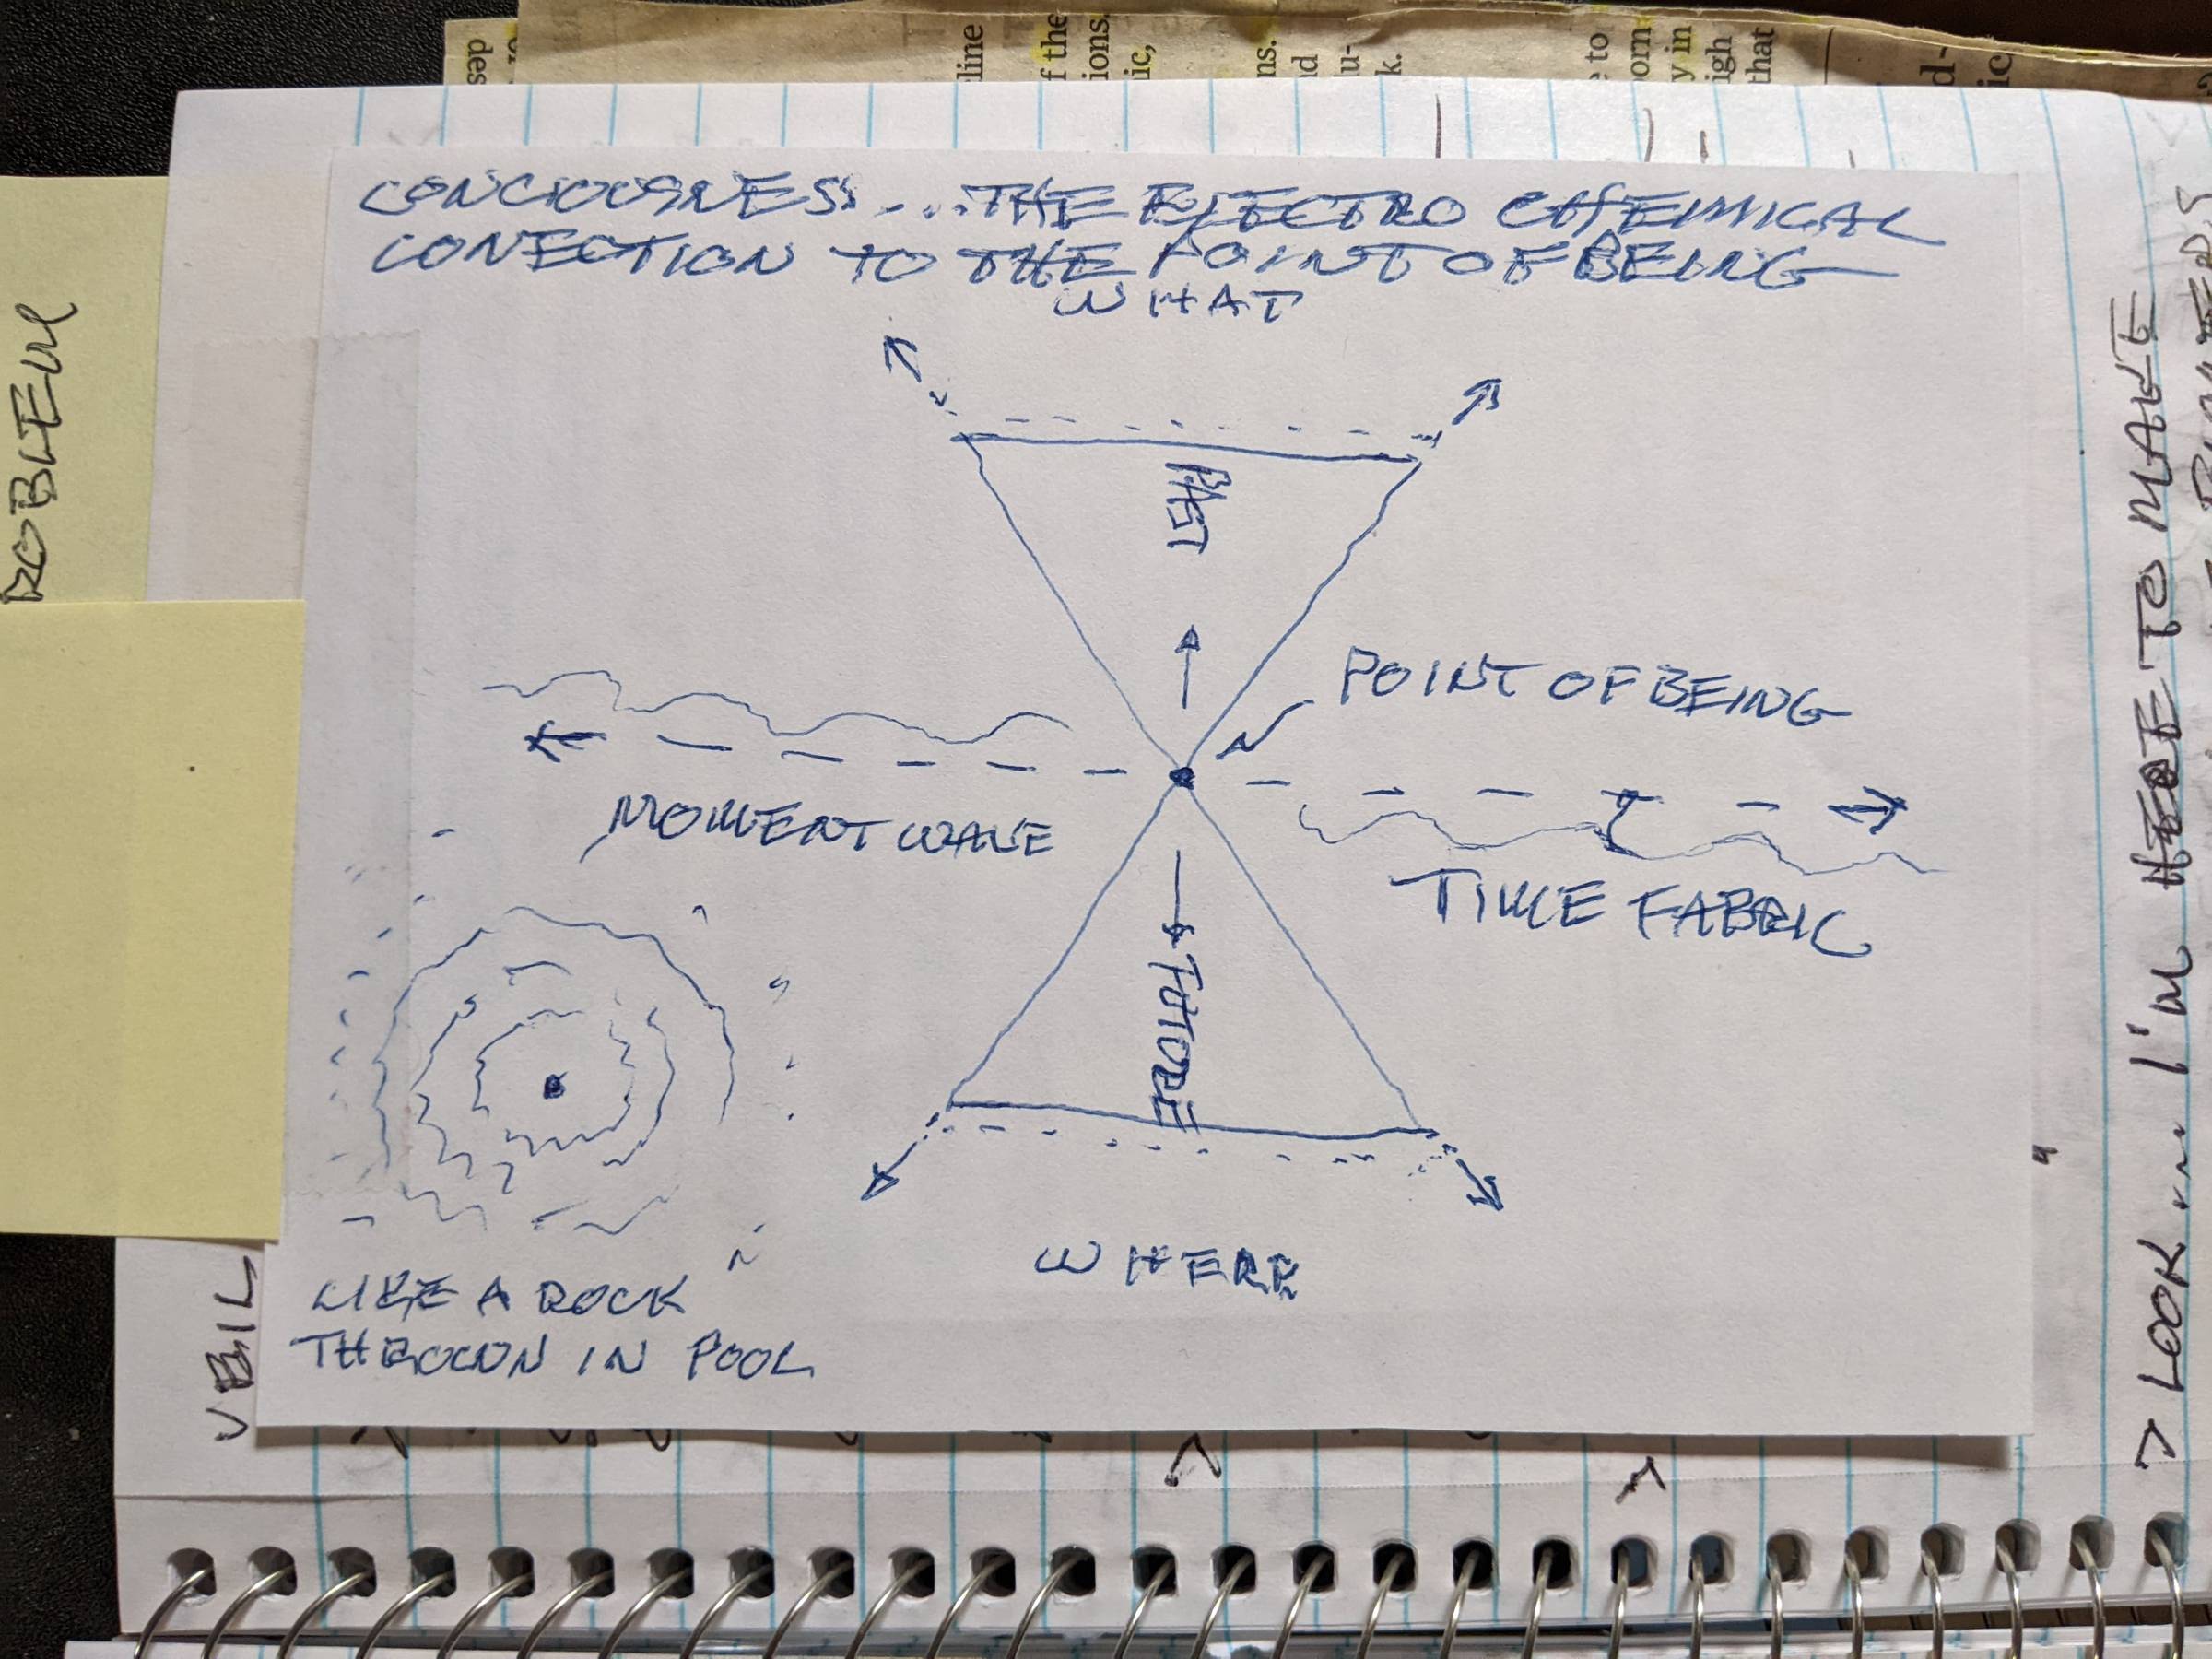 CONCIOUSNESS....THE ELECTRO CHEMICAL
CONECTION TO THE POINT OF BEING
WHAT
PAST
POINT OF BEING
MOMENT WAVE
TIME FABRIC
FUTURE
WHERE
LIKE A ROCK
THROWN IN POOL
ROBLEM
VEIL
> LOOK... I'M HERE TO MAKE
des
line
f the
ions.
ic,
ns.
u-
k.
to
orn
y in
igh
that
d-
ic